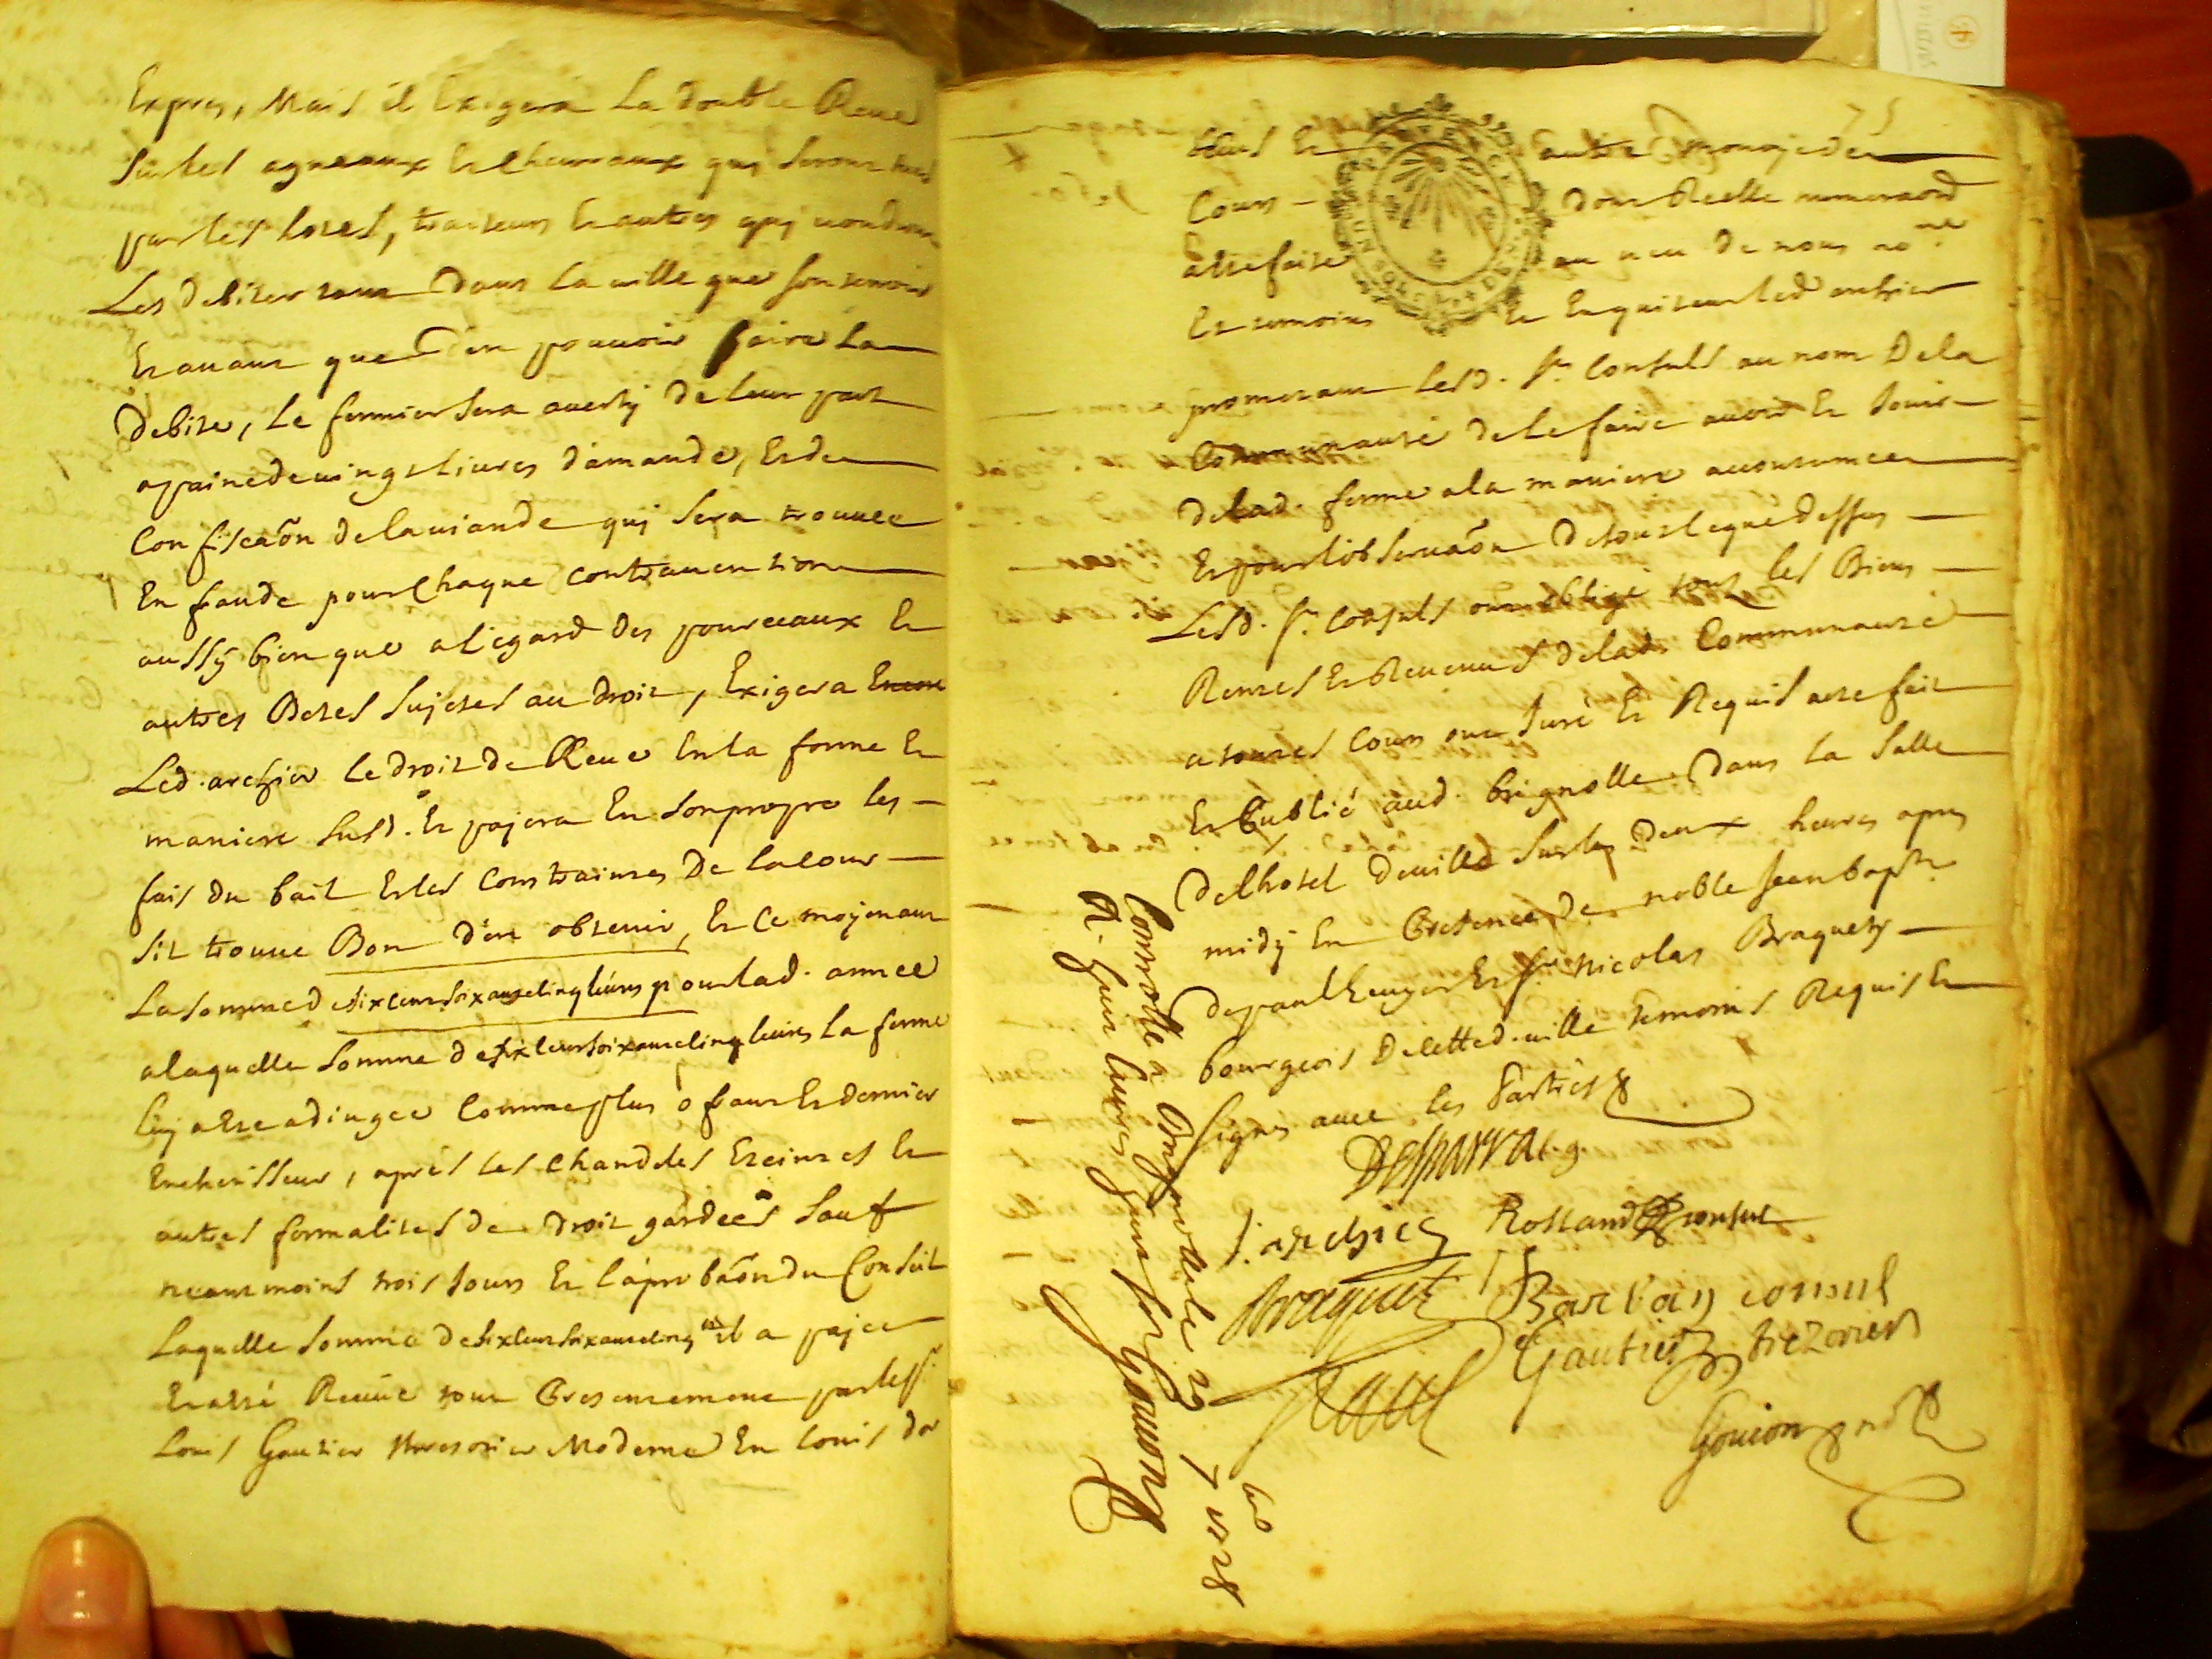 Expres, Mais il Exigera La double Reue
Sur les agneaux Et cheureaux quy seront tues
par les hotes, traiteurs Et autres quy uoudront
Les debiter tant dans La uille que son terroir
Et auant que d'en pouuoir faire La
debite, Le fermier sera auerty de leur part
a paine de uingt liures d'amande, Et de
Confiscaõn de la uiande quy sera trouuee
En fraude pour Chaque contrauention
aussy bien que a l'egard des pourceaux Et
autres Betes sujetes au droit, Exigera
Led. archier le droit de Reue En la forme Et
maniere susd. Et payera En son propre les
fais du bail Et les Contraintes De la cour
s'il trouue Bon d'en obtenir, Et Ce moyenant
La somme de six cent soixante cinq liures pour lad. année
a laquelle somme de six cent soixante cinq liures La ferme
luy a Ete adjugee Comme plus ofrant Et dernier
Encherisseur, aprés les chandeles Eteintes Et
autres formalites de droit gardées sauf
neantmoins trois Jours Et l'aprobaõn du Conseil
Laquelle somme de six cent soixante cinq il a payée
Et a Eté Reçüe tout Presentement par le Sr.
Louis Gautier thresorier Moderne En louis d'or
75
Et autre monoye de
Cours dont Reelle numeraõn
a Ete faite au ueu de nous nore.
Et temoins Et Enquiteurled archier
prometant Lesd. Srs. Consuls au nom De la
Communauté de le faire auoir Et Jouir
de lad. ferme a la maniere accoutumee
Et pour l'obseruaõn de tout ce que dessus
Lesd. Srs. Consuls ont obligé tous les Biens
Rentes Et Reuenus de lad. Communauté
a toutes Cours ont Juré Et Requis acte fait
Et Publié aud. Brignolle dans la salle
de l'hotel de uille sur les deux heures apres
midy En Presence de noble Jean bapte.
de paul Et Sr. nicolas Braquety
bourgeois De cette d. uille temoins Requis Et
signés auec les Parties
J. archier Rostand consul
Braquet Barbaig consul
Paul Gautier trezorier
Gouion nore
Controllé a Brignolle le 29 7bre 1728
R. huit liures huit sols Gouion